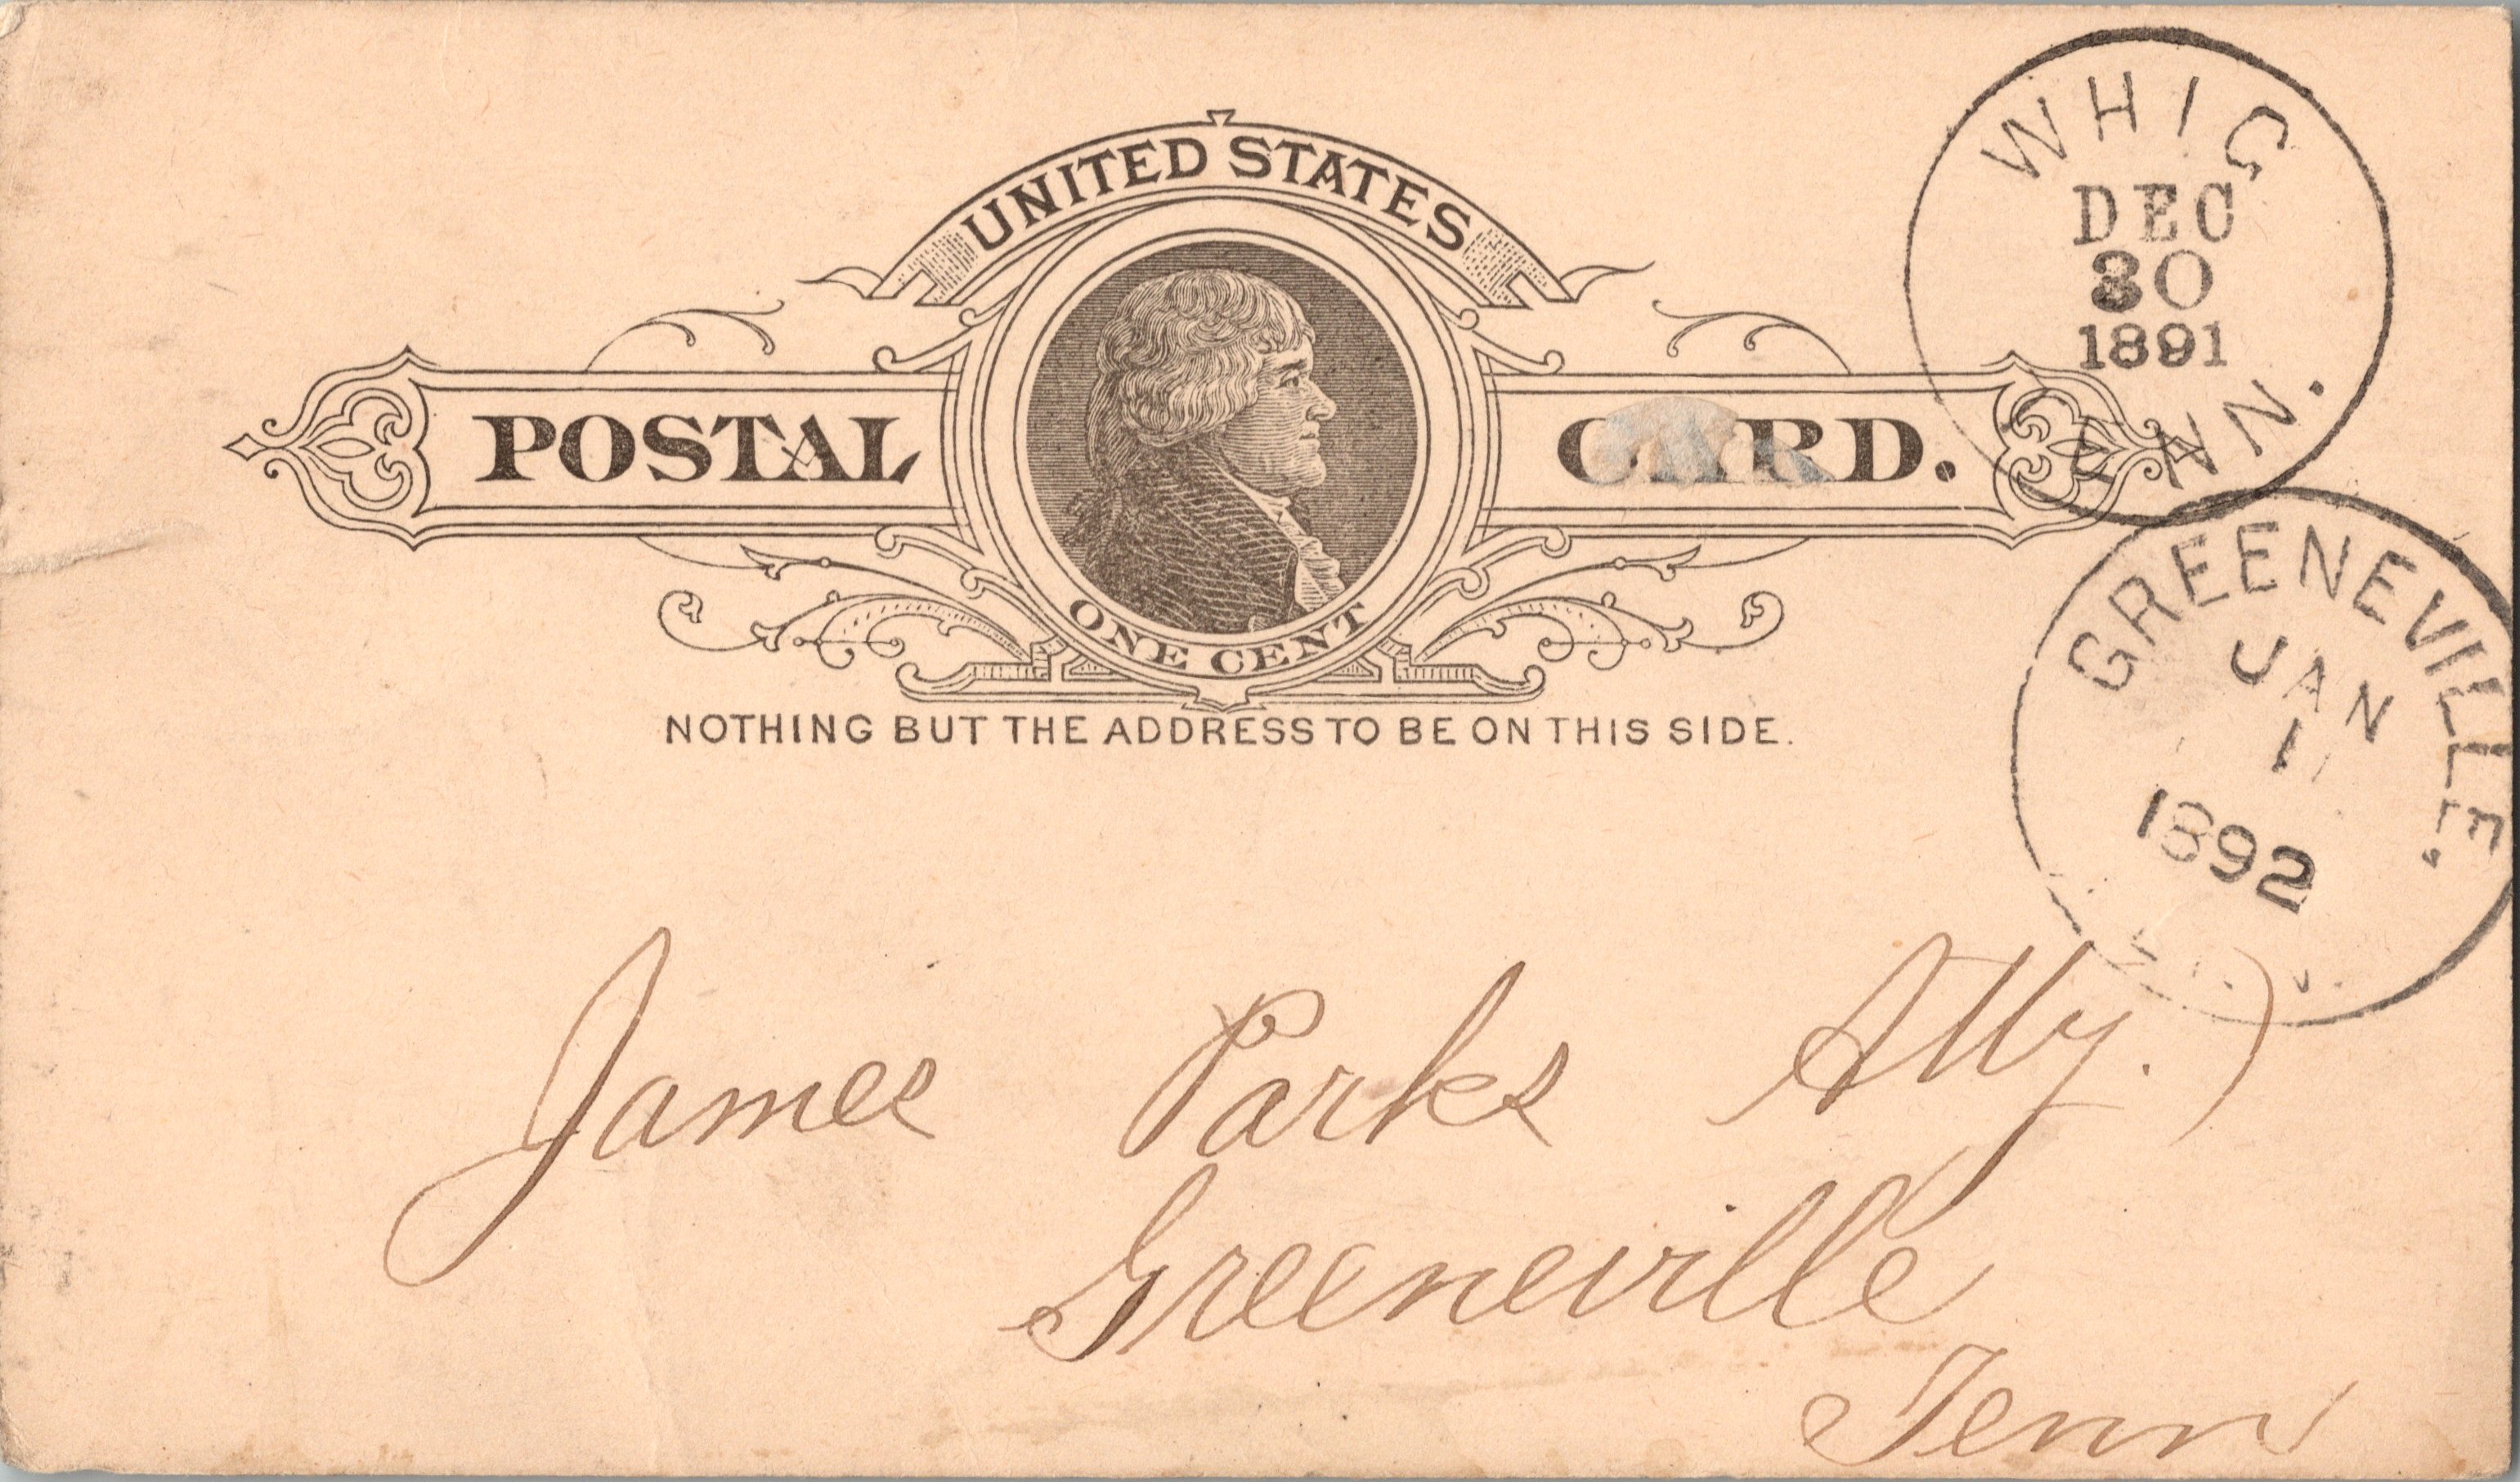 UNITED STATES
POSTAL CARD.
ONE CENT
NOTHING BUT THE ADDRESS TO BE ON THIS SIDE.
WHIG
DEC
30
1891
TENN.
GREENEVILLE.
JAN
1
1892
James Parks Atty.
Greeneville
Tenn